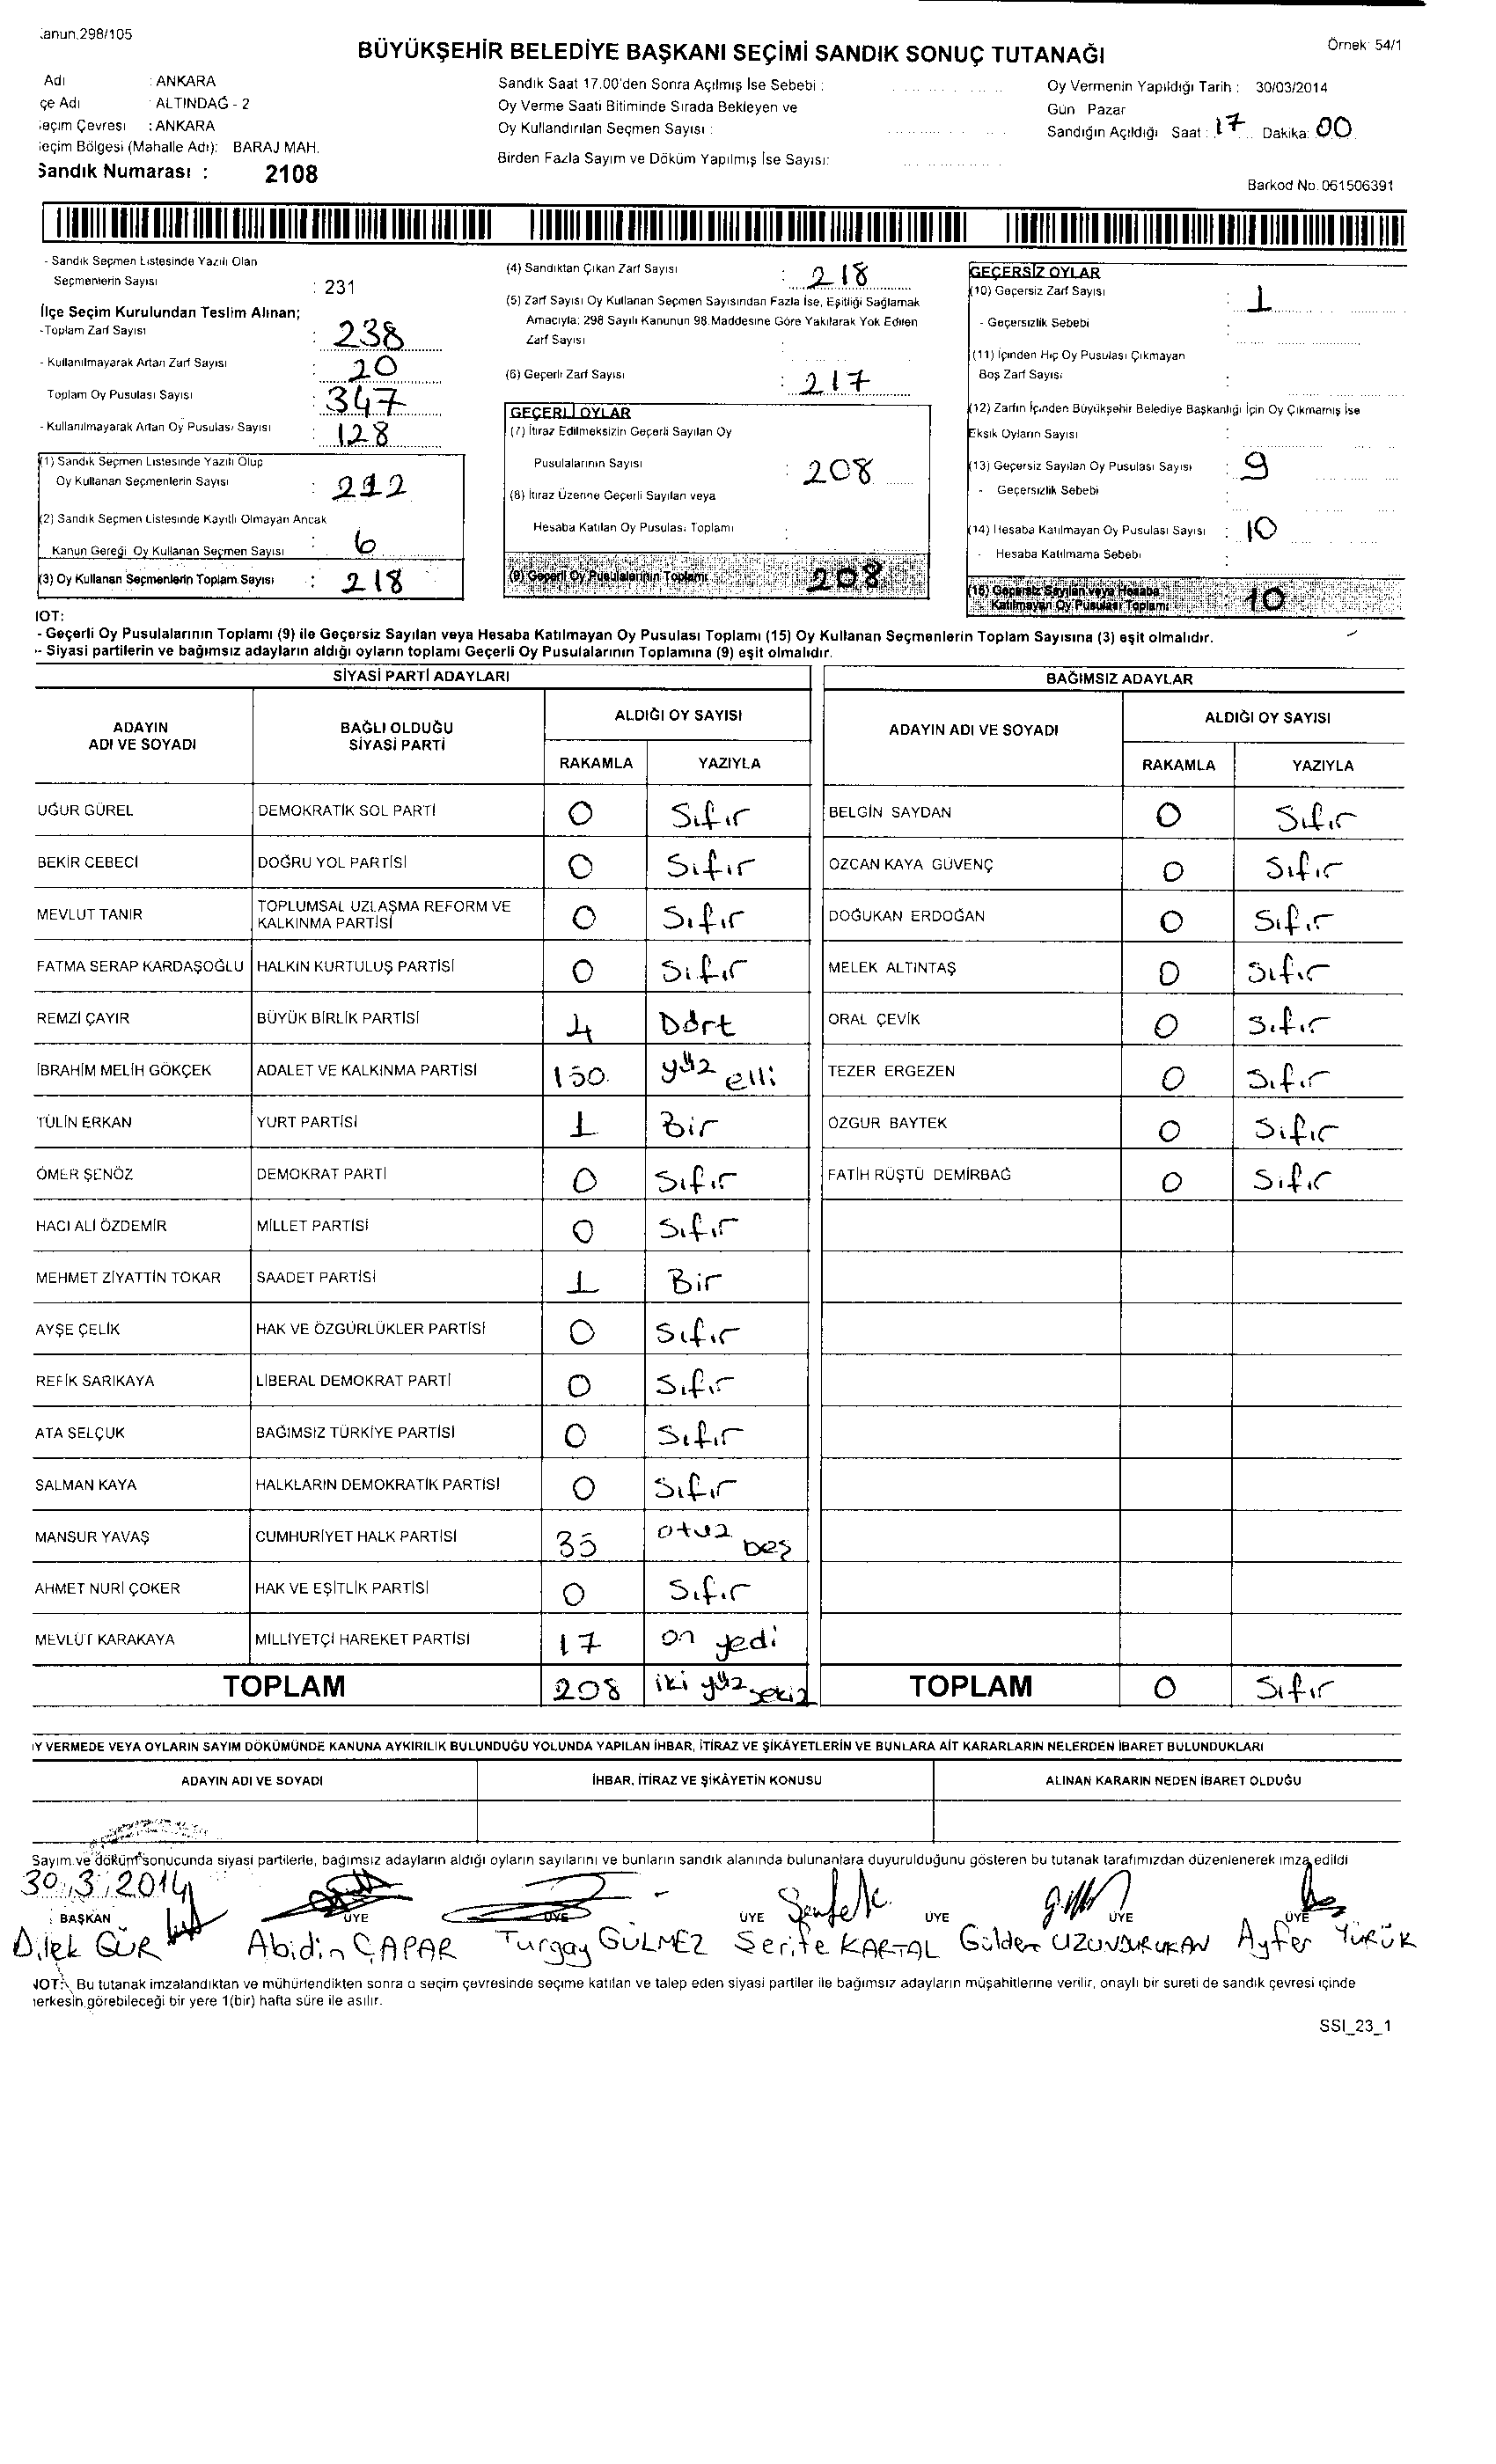 anun.298/105
Örnek 54/1
BÜYÜKŞEHİR BELEDİYE BAŞKANI SEÇİMİ SANDIK SONUÇ TUTANAĞI
Adı : ANKARA
çe Adı ALTINDAĞ - 2
eçım Çevresı : ANKARA
eçim Bölgesi (Mahalle Adı): BARAJ MAH.
Sandık Numarası : 2108
Sandık Saat 17.00'den Sonra Açılmış İse Sebebi :
Oy Verme Saati Bitiminde Sırada Bekleyen ve
Oy Kullandırılan Seçmen Sayısı :
Birden Fazla Sayım ve Döküm Yapılmış İse Sayısı:
Oy Vermenin Yapıldığı Tarih : 30/03/2014
Gün Pazar
Sandığın Açıldığı Saat : 17 Dakika: 00
Barkod No. 061506391
- Sandık Seçmen Listesinde Yazılı Olan
Seçmenlerin Sayısı : 231
İlçe Seçim Kurulundan Teslim Alınan;
-Toplam Zarf Sayısı : 238
- Kullanılmayarak Artan Zarf Sayısı : 20
Toplam Oy Pusulası Sayısı : 347
- Kullanılmayarak Artan Oy Pusulası Sayısı : 128
(1) Sandık Seçmen Listesinde Yazılı Olup
Oy Kullanan Seçmenlerin Sayısı : 212
(2) Sandık Seçmen Listesinde Kayıtlı Olmayan Ancak
Kanun Gereği Oy Kullanan Seçmen Sayısı : 6
(3) Oy Kullanan Seçmenlerin Toplam Sayısı : 218
(4) Sandıktan Çıkan Zarf Sayısı : 218
(5) Zarf Sayısı Oy Kullanan Seçmen Sayısından Fazla İse, Eşitliği Sağlamak
Amacıyla; 298 Sayılı Kanunun 98.Maddesine Göre Yakılarak Yok Edilen
Zarf Sayısı :
(6) Geçerli Zarf Sayısı : 217
GEÇERLİ OYLAR
(7) İtiraz Edilmeksizin Geçerli Sayılan Oy
Pusulalarının Sayısı : 208
(8) İtiraz Üzerine Geçerli Sayılan veya
Hesaba Katılan Oy Pusulası Toplamı :
(9) Geçerli Oy Pusulalarının Toplamı 208
GEÇERSİZ OYLAR
(10) Geçersiz Zarf Sayısı : 1
- Geçersizlik Sebebi :
(11) İçinden Hiç Oy Pusulası Çıkmayan
Boş Zarf Sayısı :
(12) Zarfın İçinden Büyükşehir Belediye Başkanlığı İçin Oy Çıkmamış İse
Eksik Oyların Sayısı :
(13) Geçersiz Sayılan Oy Pusulası Sayısı : 9
- Geçersizlik Sebebi
(14) Hesaba Katılmayan Oy Pusulası Sayısı : 10
- Hesaba Katılmama Sebebi :
(15) Geçersiz Sayılan veya Hesaba
Katılmayan Oy Pusulası Toplamı 10
NOT:
- Geçerli Oy Pusulalarının Toplamı (9) ile Geçersiz Sayılan veya Hesaba Katılmayan Oy Pusulası Toplamı (15) Oy Kullanan Seçmenlerin Toplam Sayısına (3) eşit olmalıdır.
- Siyasi partilerin ve bağımsız adayların aldığı oyların toplamı Geçerli Oy Pusulalarının Toplamına (9) eşit olmalıdır.
SİYASİ PARTİ ADAYLARI
ADAYIN ADI VE SOYADI
BAĞLI OLDUĞU SİYASİ PARTİ
ALDIĞI OY SAYISI
RAKAMLA YAZIYLA
UĞUR GÜREL DEMOKRATİK SOL PARTİ 0 Sıfır
BEKİR CEBECİ DOĞRU YOL PARTİSİ 0 Sıfır
MEVLUT TANIR TOPLUMSAL UZLAŞMA REFORM VE KALKINMA PARTİSİ 0 Sıfır
FATMA SERAP KARDAŞOĞLU HALKIN KURTULUŞ PARTİSİ 0 Sıfır
REMZİ ÇAYIR BÜYÜK BİRLİK PARTİSİ 4 Dört
İBRAHİM MELİH GÖKÇEK ADALET VE KALKINMA PARTİSİ 150 yüz elli
TÜLİN ERKAN YURT PARTİSİ 1 Bir
ÖMER ŞENÖZ DEMOKRAT PARTİ 0 Sıfır
HACI ALİ ÖZDEMİR MİLLET PARTİSİ 0 Sıfır
MEHMET ZİYATTİN TOKAR SAADET PARTİSİ 1 Bir
AYŞE ÇELİK HAK VE ÖZGÜRLÜKLER PARTİSİ 0 Sıfır
REFİK SARIKAYA LİBERAL DEMOKRAT PARTİ 0 Sıfır
ATA SELÇUK BAĞIMSIZ TÜRKİYE PARTİSİ 0 Sıfır
SALMAN KAYA HALKLARIN DEMOKRATİK PARTİSİ 0 Sıfır
MANSUR YAVAŞ CUMHURİYET HALK PARTİSİ 35 otuz beş
AHMET NURİ ÇOKER HAK VE EŞİTLİK PARTİSİ 0 Sıfır
MEVLÜT KARAKAYA MİLLİYETÇİ HAREKET PARTİSİ 17 on yedi
TOPLAM 208 iki yüz sekiz
BAĞIMSIZ ADAYLAR
ADAYIN ADI VE SOYADI
ALDIĞI OY SAYISI
RAKAMLA YAZIYLA
BELGİN SAYDAN 0 Sıfır
ÖZCAN KAYA GÜVENÇ 0 Sıfır
DOĞUKAN ERDOĞAN 0 Sıfır
MELEK ALTINTAŞ 0 Sıfır
ORAL ÇEVİK 0 Sıfır
TEZER ERGEZEN 0 Sıfır
ÖZGUR BAYTEK 0 Sıfır
FATİH RÜŞTÜ DEMİRBAĞ 0 Sıfır
TOPLAM 0 Sıfır
Y VERMEDE VEYA OYLARIN SAYIM DÖKÜMÜNDE KANUNA AYKIRILIK BULUNDUĞU YOLUNDA YAPILAN İHBAR, İTİRAZ VE ŞİKÂYETLERİN VE BUNLARA AİT KARARLARIN NELERDEN İBARET BULUNDUKLARI
ADAYIN ADI VE SOYADI İHBAR, İTİRAZ VE ŞİKÂYETİN KONUSU ALINAN KARARIN NEDEN İBARET OLDUĞU
Sayım ve döküm sonucunda siyasi partilerle, bağımsız adayların aldığı oyların sayılarını ve bunların sandık alanında bulunanlara duyurulduğunu gösteren bu tutanak tarafımızdan düzenlenerek imza edildi
30.3.2014
BAŞKAN ÜYE ÜYE ÜYE ÜYE ÜYE ÜYE
Dilek GÜR Abidin ÇAPAR Turgay GÜLMEZ Şerife KARTAL Gülden UZUNDURUKAN Ayfer YÜRÜK
NOT: Bu tutanak imzalandıktan ve mühürlendikten sonra o seçim çevresinde seçime katılan ve talep eden siyasi partiler ile bağımsız adayların müşahitlerine verilir, onaylı bir sureti de sandık çevresi içinde
herkesin görebileceği bir yere 1(bir) hafta süre ile asılır.
SSI_23_1